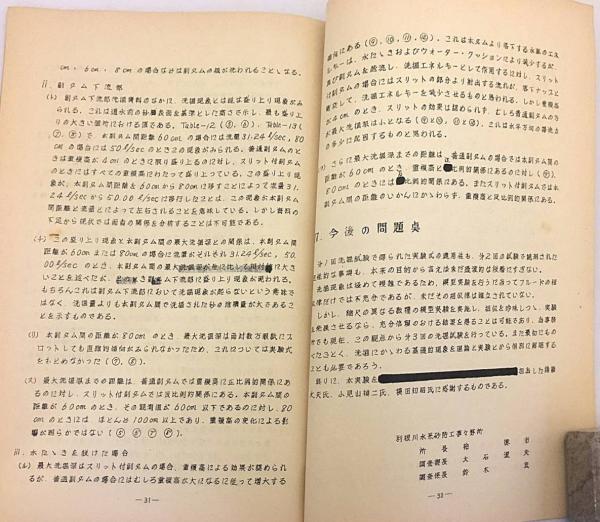 cm, 6cm, 8cmの場合などは副ダムの根が洗われることになる。
ii. 副ダム下流部
(ト) 副ダム下流部洗堀資料のなかに、洗堀現象とは逆な盛り上り現象がみ
られる。これは通水前の砂暴表面を基準とした高さで示し、最も盛上
りの大きい箇所における値である。Table-12(③, ⑥)、Table-13(
⑦, ⑧)で、本副ダム間距離60cmの場合には流量31.24ℓ/sec, 80
cmの場合には50ℓ/secのときこの現象がみられる。普通副ダムのと
きは重複高が4cmのときに限り盛上るのに対し、スリット付副ダムの
ときにはすべての重複高にわたって盛り上っている。この盛り上り現
象が、本副ダム間距離を60cmから80cmに移すことによって流量31.
24ℓ/secから50.00ℓ/secに移行したことは、この現象が本副ダム
間距離と流量とによって左右されることを意味している。しかし資料の
不足から現状では両者の関係を分析することは不可能である。
(チ) この盛り上り現象と本副ダム間の最大洗堀深との関係は、本副ダム間
距離が60cmまたは80cmの場合に流量がそれぞれ31.24ℓ/sec, 50.
00ℓ/secのとき、本副ダム間の最大洗堀深が他に比し
いことを述べたが、副ダム下流部に盛り上り現象が現われる。
もちろんこれは副ダム下流部において洗堀現象が起らないという意味で
はなく、洗堀量よりも本副ダム間で洗堀された砂の堆積量が大であるこ
とを示すものである。
(リ) 本副ダム間の距離が80cmのとき、最大洗堀深は両対数方眼紙にプ
ロットしても直線的傾向がみられなかったため、これについては実験式
をもとめなかった(⑦, ⑧)。
(ヌ) 最大洗堀深までの距離は、普通副ダムでは重複高に正比例的関係にあ
るのに対し、スリット付副ダムでは反比例的関係にある。本副ダム間の
距離が60cmのとき、その到着値が60cm以下であるのに対し、80
cmのときには、ほとんど100cm以上であり、重複高の変化による影
響が明らかではない(⑤ ⑥ ⑦ ⑧)
iii. 水たゝきを設けた場合
(ル) 最大洗堀深はスリット付副ダムの場合、重複高による効果が認められ
るが、普通副ダムの場合にはむしろ重複高が大になるに従って増大する
—31—
傾向にある(⑨, ⑩, ⑪, ⑫)。これは本ダムより落下する水脈のエネ
ルギーは、水たゝきおよびウォーター・クッションにより減少するが、
副ダムを越流し、洗堀エネルギーとして作用するに対し、スリット
付副ダムの場合にはスリットの部分より射出する流れが、落下ナップと
衝突して、洗堀エネルギーを減少せるものと思われる。しかし重複高
が4cmのとき、スリットの効果は認められず、むしろ普通副ダムの方
が最大洗堀深は小となる(⑨, ⑩, ⑪)。
の多少に起因するものと思われる。
さらに最大洗堀深までの距離は、普通副ダムの場合では本副ダム間の
距離が60cmのとき、重複高と正比例的関係にあるのに対し(⑨)、
80cmのときには反比例的関係にある。またスリット付副ダムでは本
副ダム間の距離のいかんにかゝわらず、重複高と反比例的関係にある。
7. 今後の問題奌
分1回洗堀試験で得られた実験式の適用法も、分2回の試験で観測された
的な事項も、本来の目的から言えばまだ過渡的な段階にすぎない。
洗堀現象は極めて複雑であるため、模型実験を行うに当ってフルードの相
似律だけでは不充分であるが、まだその相似律は確立されていない。
しかし、縮尺の異なる数種の模型実験を実施し、相似を吟味しつゝ、実験
を発展させるなら、充分信頼のおける結果を得ることは可能であり、当事務
所でも現在、この観点から分3回の洗堀試験を行っている。また最初にもの
べたごとく、洗堀にかゝわる基礎的現象を理論と実験とから個別に解明する
ことも必要であろう。
終りに、本実験を
大天氏、小見山雄二氏、横田知昭氏に感謝するものである。
利根川水系砂防工事々務所
所長
調査課長 大石
調査係長 鈴木
—32—